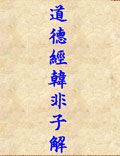 道德經韓非子解